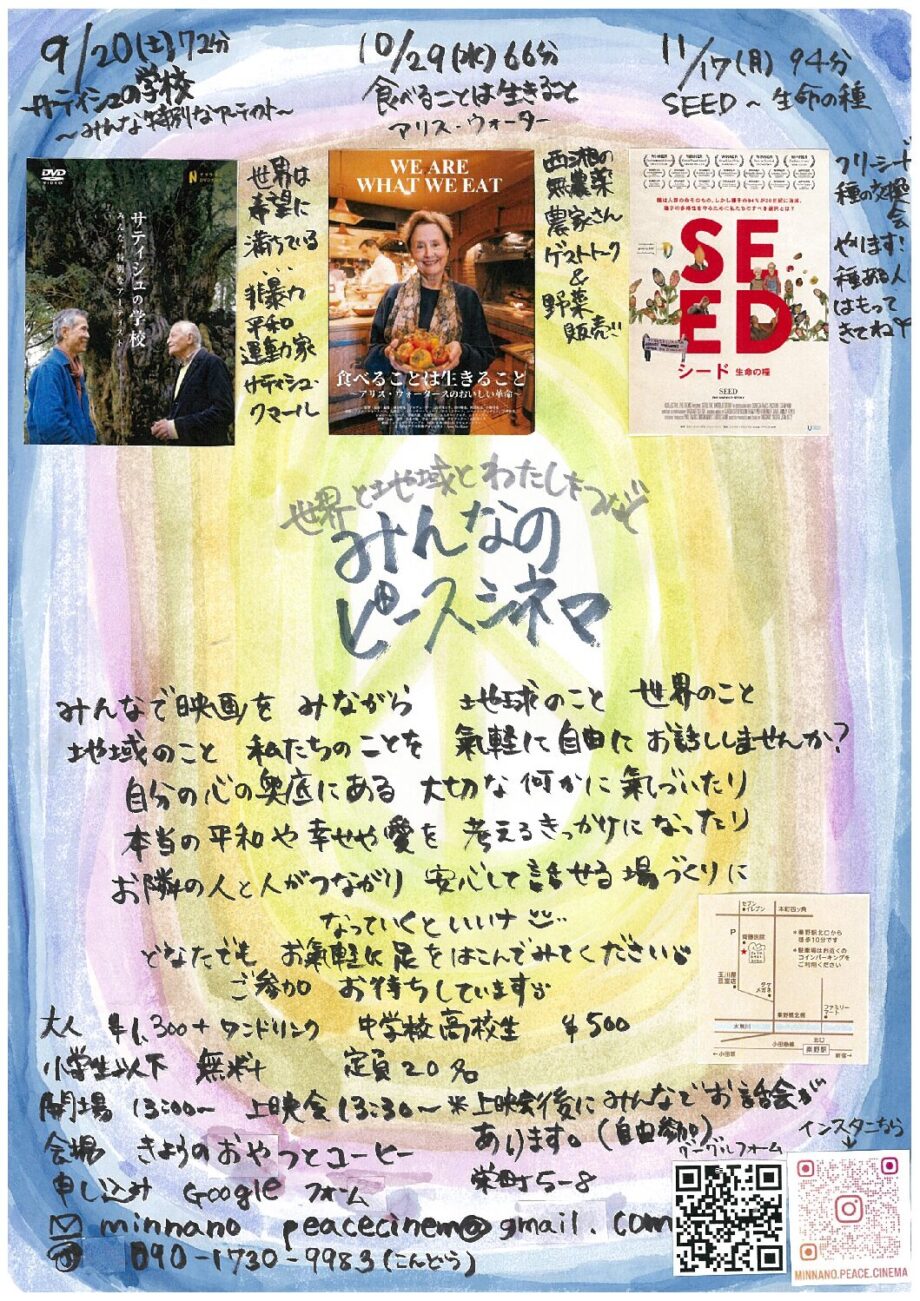 9/20(土)72分
サティシュの学校
～みんな特別なアーティスト～
10/29(水)66分
食べることは生きること
アリス・ウォーター
11/17(月)94分
SEED～生命の種
DVD
VIDEO
サティシュの学校
みんな、特別なアーティスト
世界は
希望に
満ちている
...
非暴力
平和
運動家
サティシュ・
クマール
WE ARE
WHAT WE EAT
食べることは生きること
～アリス・ウォータースのおいしい革命～
西湘の
無農薬
農家さん
ゲストトーク
&
野菜
販売
SE
ED
シード 生命の糧
SEED
フリーシード
種の交換
会
やります!
種ある人
はもって
きてね
世界と地域とわたしをつなぐ
みんなの
ピースシネマ
みんなで映画を みながら 地球のこと 世界のこと
地域のこと 私たちのことを 氣軽に自由に お話ししませんか?
自分の心の奥底にある 大切な何かに氣づいたり
本当の平和や幸せや愛を 考えるきっかけになったり
お隣の人と人がつながり 安心して話せる場づくりに
なっていくといいナ
どなたでも お氣軽に足をはこんでみてください
ご参加 お待ちしています
セブン
イレブン
本町四ツ角
P
齋藤医院
*秦野駅北口から
徒歩10分です
*駐車場はお近くの
コインパーキングを
ご利用ください
玉川屋
豆富店
タケ
メガネ
ファミリー
マート
秦野橋北側
水無川
北口
小田急線
秦野駅
←小田原
新宿→
大人 ¥1,300+ワンドリンク 中学校高校生 ¥500
小学生以下 無料 定員20名
開場 13:00～ 上映会13:30～ ※上映会後にみんなでお話会が
あります。(自由参加)
会場 きょうのおやつとコーヒー
栄町5-8
申し込み Google フォーム
グーグルフォーム
インスタなら
minnano peacecinema@gmail.com
090-1730-9983(こんどう)
MINNANO.PEACE.CINEMA